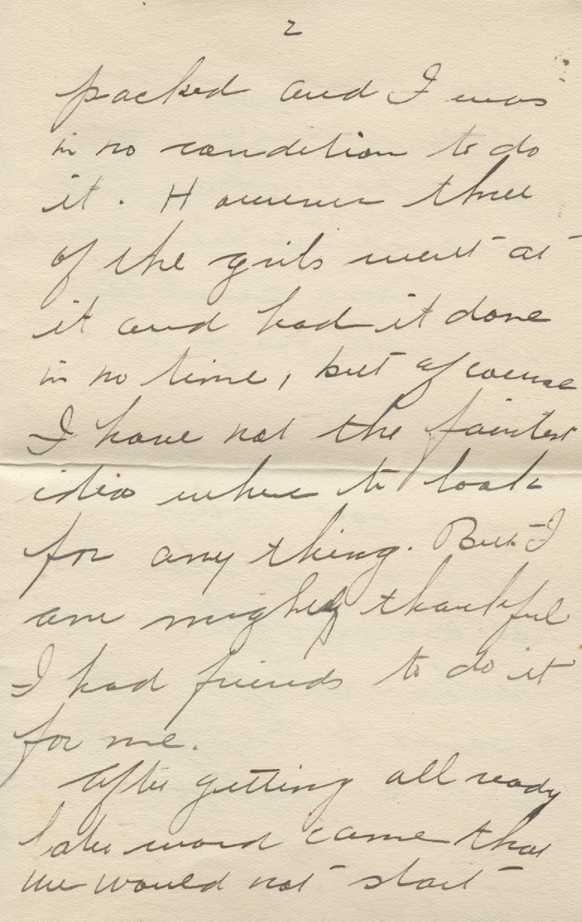 2
packed and I was
in no condition to do
it. However three
of the girls went at
it and had it done
in no time, but of course
I have not the faintest
idea where to look
for any thing. But I
am mighty thankful
I had friends to do it
for me.
After getting all ready
later word came that
we would not start